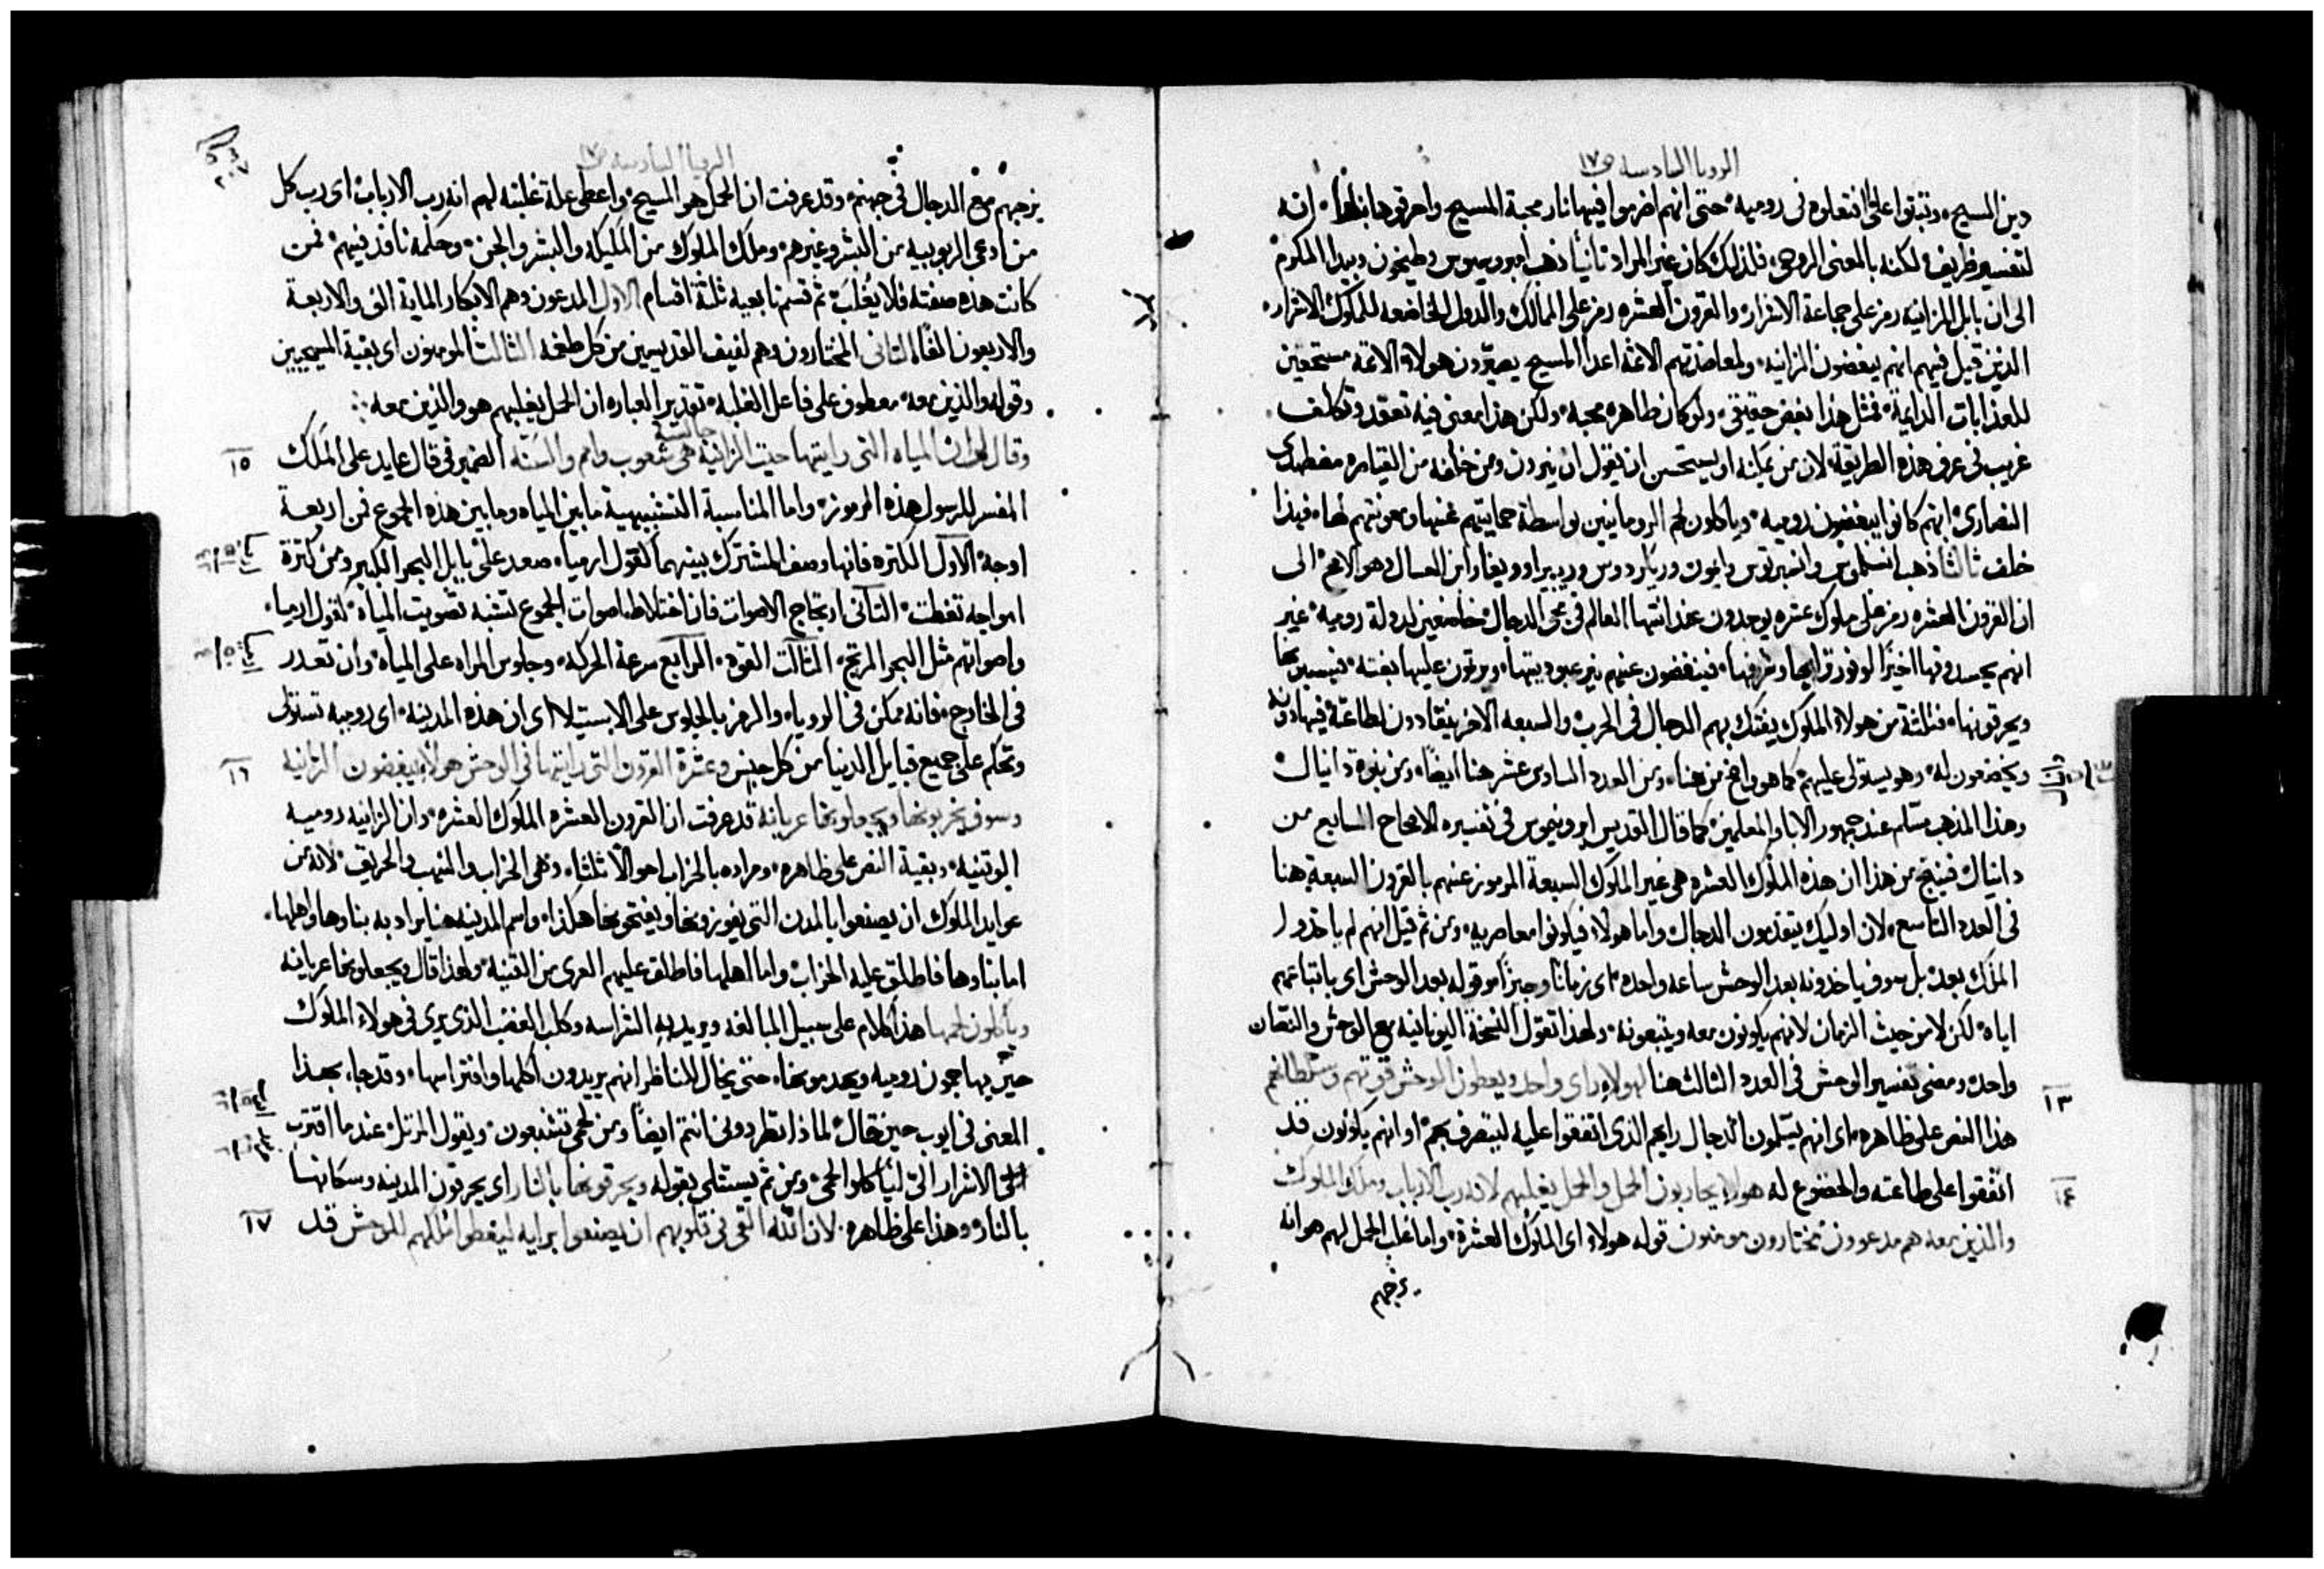 الرويا السادسه ص١٧
دين المسيح، وتبتوا على اقتفاوه في روميه، حتى انهم اضرموا فيها نار محبة المسيح واحرقوها بنار. انه
لتفسير ظريف، لكنه بالمعنى الروحي، فلذلك كان غير المراد تانيا ذهب امبروسيوس وطيخون وبيدا المكرم
الى ان بابل الزانيه رمز على جماعة الاشرار، والقرون العشره رمز على الممالك والدول الخاضعه للملوك الاشرار،
الذين قيل فيهم انهم يبغضون الزانيه، ولمعاضدتهم الاثمة اعدا المسيح يصيرون هولاء الاثمة مستحقين
للعذابات الدايمة، فمثل هذا بغض حقيقي، ولو كان ظاهره محبه، ولكن هذا معنى فيه تعقد وتكلف
غريب في عرف هذه الطريقة، لان من يمكنه او يستحسن ان يقول ان نيرون ومن خلفه من القياصره مضطهدي
النصارى، انهم كانوا يبغضون روميه، وياكلون لحم الرومانيين بواسطة حمايتهم عنها ومعونتهم لها، فهذا
خلف تالثا ذهب انسلموس وانمبرتوس وايون وريكردوس وريبيرا وويغا وابن العسال وهو الاصح الى
ان القرون العشره رمز على ملوك عشره يوجدون عند انتها العالم في مجي الدجال، خاضعين لدولة روميه، غير
انهم يحسدونها اخيرا لوفور ترابها وشرفها، فينفضون عنهم نير عبوديتها، ويرتون عليها بغته، فيسبونها
ويحرقونها، فثلثة من هولاء الملوك يفتك بهم الدجال في الحرب، والسبعه الاخر ينقادون لطاعته فيهادونه
ويخضعون له، وهو يستولى عليهم، كما هو واضح من هنا، ومن العدد السادس عشر هنا ايضا، ومن نبوة دانيال
وهذا المذهب مسلم عند جمهور الابا والمعلمين، كما قال القديس ايرونيموس في تفسيره الاصحاح السابع من
دانيال فينتج من هذا ان هذه الملوك العشره هي غير الملوك السبعة المرموز عنهم بالقرون السبعة هنا
في العدد التاسع، لان اوليك يتقدمون الدجال، واما هولاء فيكونوا معاصريه، ومن ثم قيل انهم لم ياخذوا
الملك بعد، بل سوف ياخذونه بعد الوحش ساعه واحده، اى زمانا وجيزا، وقوله بعد الوحش اى باتباعهم
اياه، لكن لا من حيث الزمان لانهم يكونون معه ويتبعونه، ولهذا تقول النسخة اليونانيه مع الوحش والنصان
واحد، ومضى تفسير الوحش في العدد الثالث هنا لهولاء راى واحد ويعطون الوحش قوتهم وسلطانهم
١٣
هذا النص على ظاهره، اى انهم يسلمون الدجال رايهم الذى اتفقوا عليه ليتصرف بهم، او انهم يكونون قد
اتفقوا على طاعته والخضوع له هولاء يحاربون الحمل والحمل يغلبهم لانه رب الارباب وملك الملوك
١٤
والذين معه هم مدعوون مختارون مومنون قوله هولاء اى الملوك العشرة، واما غلب الحمل لهم هو انه
يزجهم
الرويا السادسه ص١٧
٢٠٧
يزجهم مع الدجال في جهنم، وقد عرفت ان الحمل هو المسيح، واعطى علة غلبته لهم انه رب الارباب، اى رب كل
من ادعى الربوبيه من البشر وغيرهم، وملك الملوك من المليكه والبشر والجن، وحكمه نافذ فيهم، فمن
كانت هذه صفته فلا يغلب، ثم قسم تابعيه ثلثة اقسام الاول المدعون وهم الابكار الماية الف والاربعة
والاربعون الفا، الثاني المختارون وهم لفيف القديسين من كل طغمه الثالث المومنون اى بقية المسيحيين
وقوله والذين معه، معطوف على فاعل الغلبه، تقدير العباره ان الحمل يغلبهم هو والذين معه،
وقال لي ان المياه التى رايتها حيث الزانية جالسة هي شعوب وامم والسنه الضمير في قال عايد على الملك
١٥
المفسر للرسول هذه الرموز، واما المناسبة التشبيهية ما بين المياه وما بين هذه الجموع فمن اربعة
اوجه، الاول الكثره فانها وصف المشترك بينهما كقول ارميا، صعد على بابل البحر الكبير ومن كثرة
امواجه تغطت، الثاني ارتجاج الاصوات فان اختلاط اصوات الجموع تشبه تصويت المياه، كقول ارميا،
واصواتهم مثل البحر المرتج، الثالث القوه، الرابع سرعة الحركه، وجلوس المراه على المياه، وان تعذر
في الخارج، فانه ممكن في الرويا، والرمز بالجلوس على الاستيلا اى ان هذه المدينه، اى روميه تستولى
وتحكم على جميع قبايل الدنيا من كل جنس وعشرة القرون التى رايتها في الوحش هولاء يبغضون الزانيه
١٦
وسوف يخربونها ويجعلونها عريانه قد عرفت ان القرون العشره الملوك العشره، وان الزانيه روميه
الوتنيه، وبقية النص على ظاهره، ومراده بالخراب احوالا ثلثا، وهي الخراب والنهب والحريق، لانه من
عوايد الملوك ان يصنعوا بالمدن التى يفوزونها ويفتحونها هكذا، واسم المدينه هنا يراد به بناوها واهلها،
اما بناوها فاطلق عليه الخراب، واما اهلها فاطلق عليهم العرى من القنيه، ولهذا قال ويجعلونها عريانه
وياكلون لحمها هذا كلام على سبيل المبالغه ويريد به الشراسه وكلب الغضب الذى يرى في هولاء الملوك
حين يهاجمون روميه ويهدمونها، حتى يخال للناظر انهم يريدون اكلها وافتراسها، وقد جاء بهذا
المعنى في ايوب حين قال لماذا تطردوني انتم ايضا ومن لحمي تشبعون، ويقول المرتل، عندما اقترب
الى الاشرار الى لياكلوا لحمي، ومن ثم يستتلى بقوله ويحرقونها بالنار اى يحرقون المدينه وسكانها
بالنار، وهذا على ظاهره، لان الله القى في قلوبهم ان يصنعوا برايه ليعطوا ملكهم للوحش قد
١٧